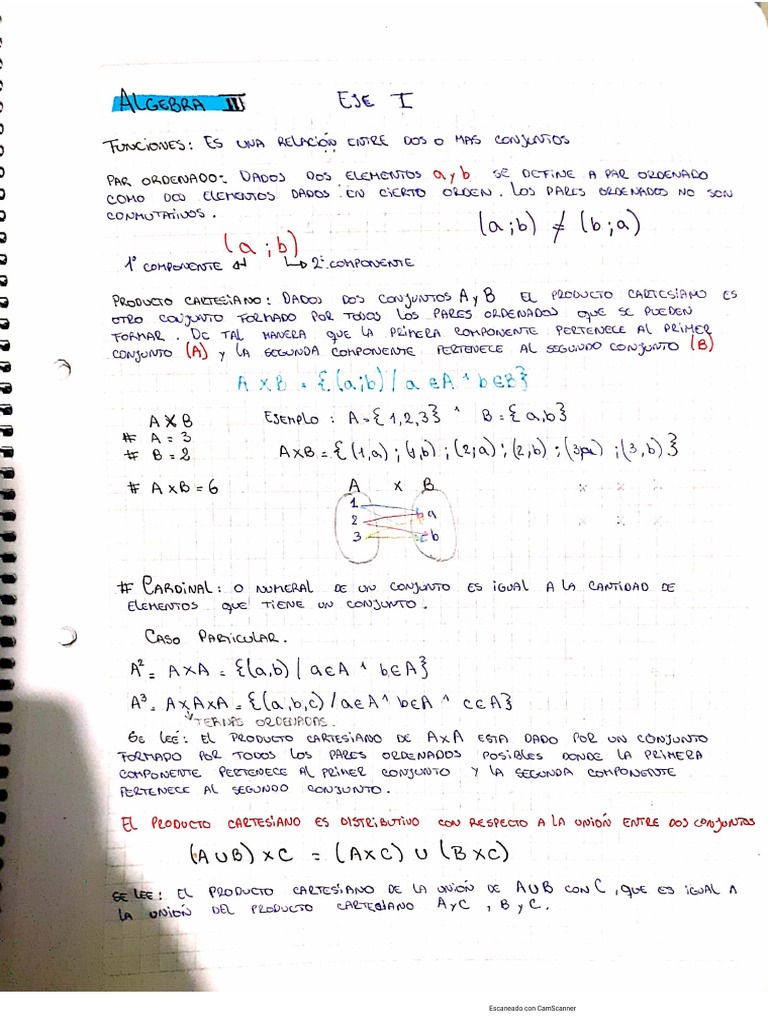 ALGEBRA II EJE I
FUNCIONES: ES UNA RELACIÓN ENTRE DOS O MAS CONJUNTOS
PAR ORDENADO: DADOS DOS ELEMENTOS a y b SE DEFINE A PAR ORDENADO
COMO DOS ELEMENTOS DADOS EN CIERTO ORDEN. LOS PARES ORDENADOS NO SON
CONMUTATIVOS.
(a;b) ≠ (b;a)
(a;b)
1° COMPONENTE ↲ ↳ 2° COMPONENTE
PRODUCTO CARTESIANO: DADOS DOS CONJUNTOS A y B EL PRODUCTO CARTESIANO ES
OTRO CONJUNTO FORMADO POR TODOS LOS PARES ORDENADOS QUE SE PUEDEN
FORMAR. DE TAL MANERA QUE LA PRIMERA COMPONENTE PERTENECE AL PRIMER
CONJUNTO (A) y LA SEGUNDA COMPONENTE PERTENECE AL SEGUNDO CONJUNTO (B)
A X B = {(a;b) / a ∈ A ^ b ∈ B}
A X B EJEMPLO : A = {1,2,3} ^ B = {a,b}
# A = 3
# B = 2 AXB = {(1,a) ; (1,b) ; (2;a) ; (2,b) ; (3;a) ; (3,b)}
# A X B = 6 A X B
1
2 a
3 b
# CARDINAL: O NUMERAL DE UN CONJUNTO ES IGUAL A LA CANTIDAD DE
ELEMENTOS QUE TIENE UN CONJUNTO.
CASO PARTICULAR.
A² = A X A = {(a,b) / a ∈ A ^ b ∈ A}
A³ = A X A X A = {(a,b,c) / a ∈ A ^ b ∈ A ^ c ∈ A}
↳ TERNAS ORDENADAS.
SE LEÉ: EL PRODUCTO CARTESIANO DE A X A ESTA DADO POR UN CONJUNTO
FORMADO POR TODOS LOS PARES ORDENADOS POSIBLES DONDE LA PRIMERA
COMPONENTE PERTENECE AL PRIMER CONJUNTO Y LA SEGUNDA COMPONENTE
PERTENECE AL SEGUNDO CONJUNTO.
EL PRODUCTO CARTESIANO ES DISTRIBUTIVO CON RESPECTO A LA UNIÓN ENTRE DOS CONJUNTOS
(A ∪ B) X C = (A X C) ∪ (B X C)
SE LEE: EL PRODUCTO CARTESIANO DE LA UNIÓN DE A ∪ B CON C, QUE ES IGUAL A
LA UNIÓN DEL PRODUCTO CARTESIANO A y C , B y C.
Escaneado con CamScanner